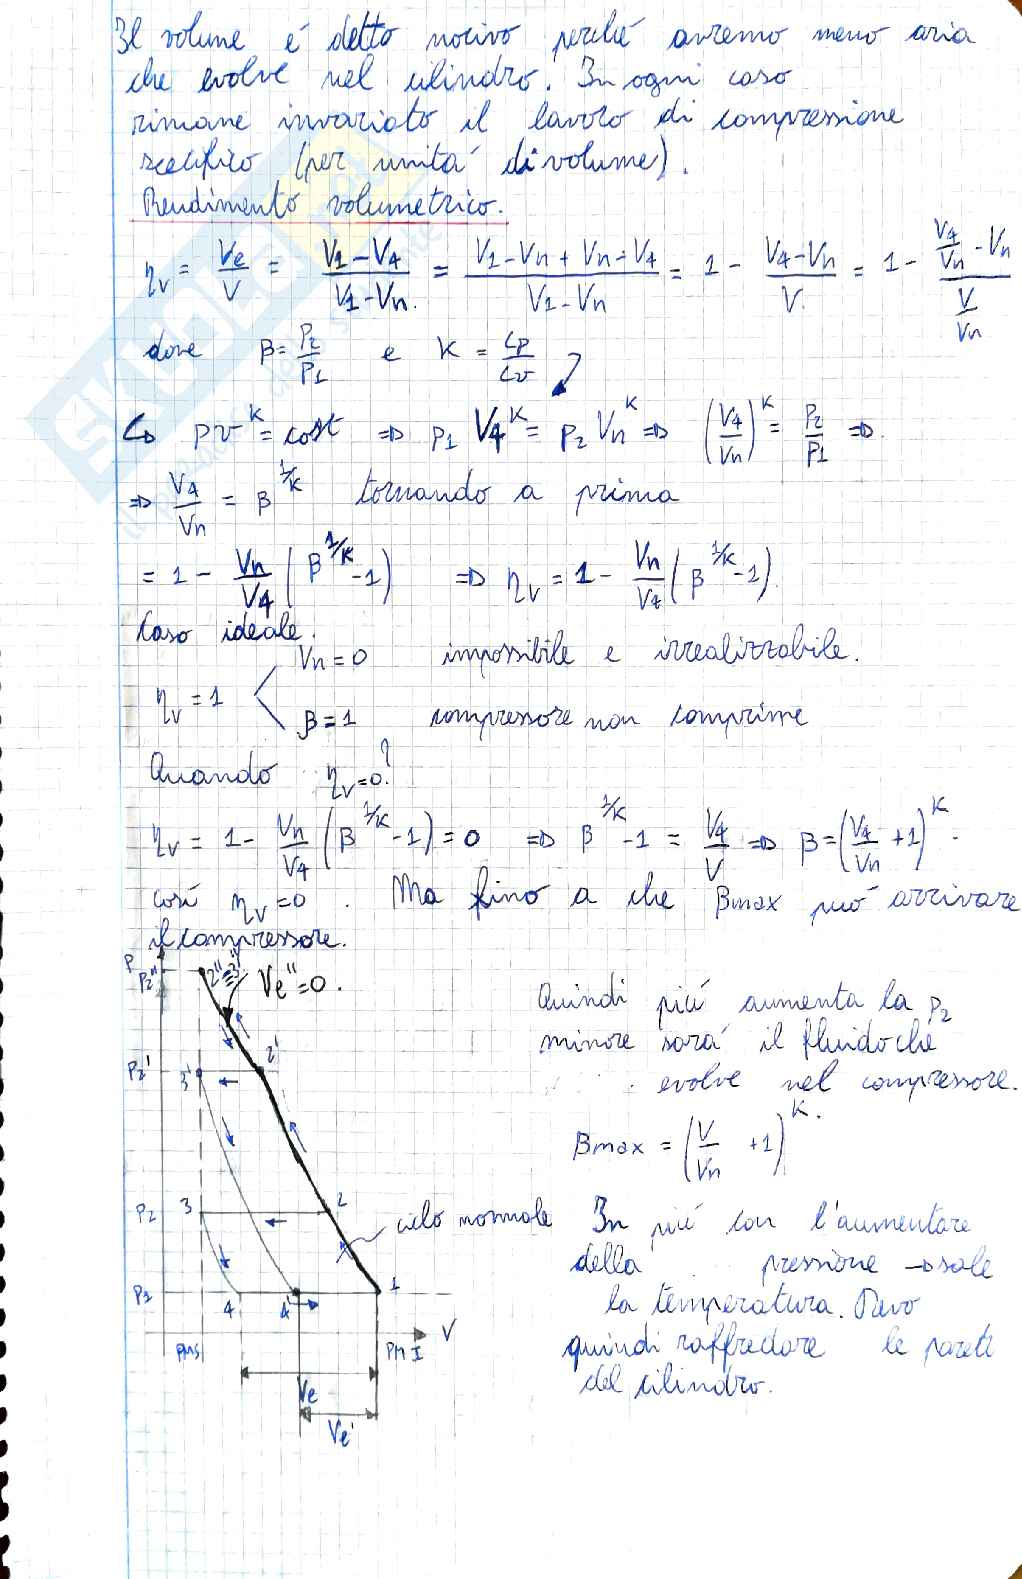 Il volume é detto nocivo perché avremo meno aria
che evolve nel cilindro. In ogni caso
rimane invariato il lavoro di compressione
specifico (per unitá di volume).
Rendimento volumetrico.
ηv = Ve/V = (V1 - V4)/(V1 - Vn) = (V1 - Vn + Vn - V4)/(V1 - Vn) = 1 - (V4 - Vn)/V = 1 - (V4/Vn - Vn)/(V/Vn)
dove β = P2/P1 e K = Cp/Cv
↳ pv^K = cost ⇒ p1 V4^K = p2 Vn^K ⇒ (V4/Vn)^K = P2/P1 ⇒
⇒ V4/Vn = β^1/K tornando a prima
= 1 - Vn/V4 (β^1/K - 1) ⇒ ηv = 1 - Vn/V4 (β^1/K - 1)
Caso ideale.
Vn = 0 impossibile e irrealizzabile.
ηv = 1
β = 1 compressore non comprime
Quando ηv = 0?
ηv = 1 - Vn/V4 (β^1/K - 1) = 0 ⇒ β^1/K - 1 = V4/V ⇒ β = (V4/Vn + 1)^K.
cosí ηv = 0. Ma fino a che βmax puó arrivare
il compressore.
P
P2''
2''≡3''
Ve'' = 0.
Quindi piú aumenta la P2
minore sará il fluido che
evolve nel compressore.
P2'
3'
2'
βmax = (V/Vn + 1)^K.
P2
3
2
ciclo normale
In piú con l'aumentare
della pressione → sale
la temperatura. Devo
quindi raffredare le pareti
del cilindro.
P1
4
4'
1
V
PMS
PMI
Ve
Ve'